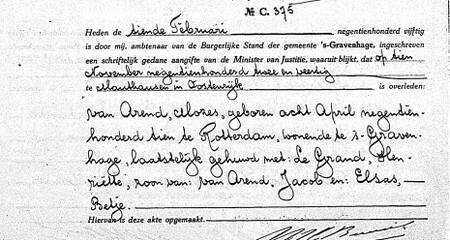 № C. 375
Heden de tiende Februari negentienhonderd vijftig
is door mij, ambtenaar van de Burgerlijke Stand der gemeente 's-Gravenhage, ingeschreven
een schriftelijk gedane aangifte van de Minister van Justitie, waaruit blijkt, dat op tien
November negentienhonderd twee en veertig
te Mauthausen in Oostenrijk is overleden:
van Arend, Mozes, geboren acht April negentien-
honderd tien te Rotterdam, wonende te 's-Graven-
hage, laatstelijk gehuwd met: Le Grand, Hen-
riëtte, zoon van: van Arend, Jacob en: Elsas, —
Betje.
Hiervan is deze akte opgemaakt.